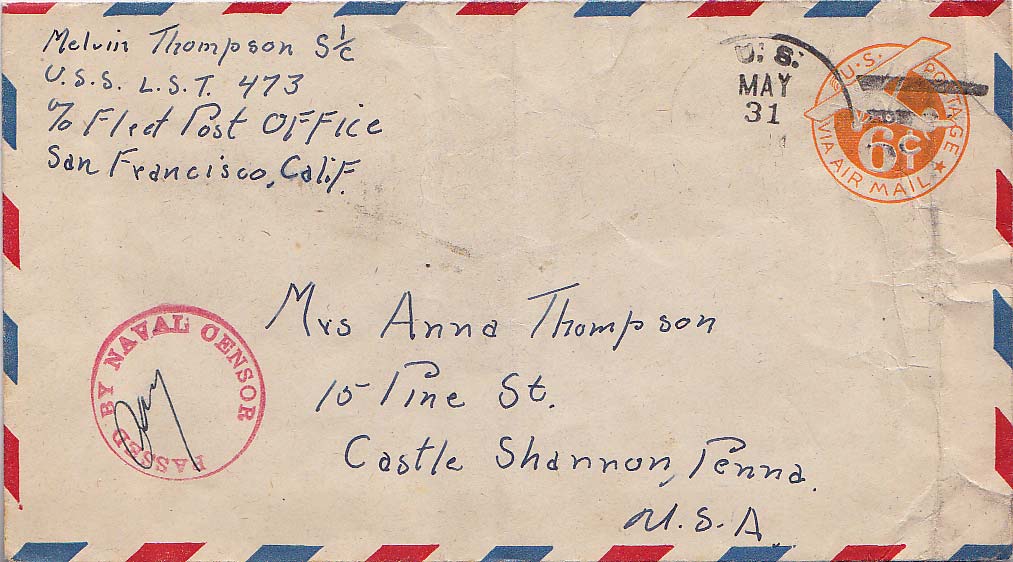 Melvin Thompson S 1/c
U.S.S. L.S.T. 473
c/o Fleet Post Office
San Francisco, Calif.
U.S.
MAY
31
U.S. POSTAGE
6¢
VIA AIR MAIL
PASSED BY NAVAL CENSOR
Mrs Anna Thompson
15 Pine St.
Castle Shannon, Penna.
U.S.A.